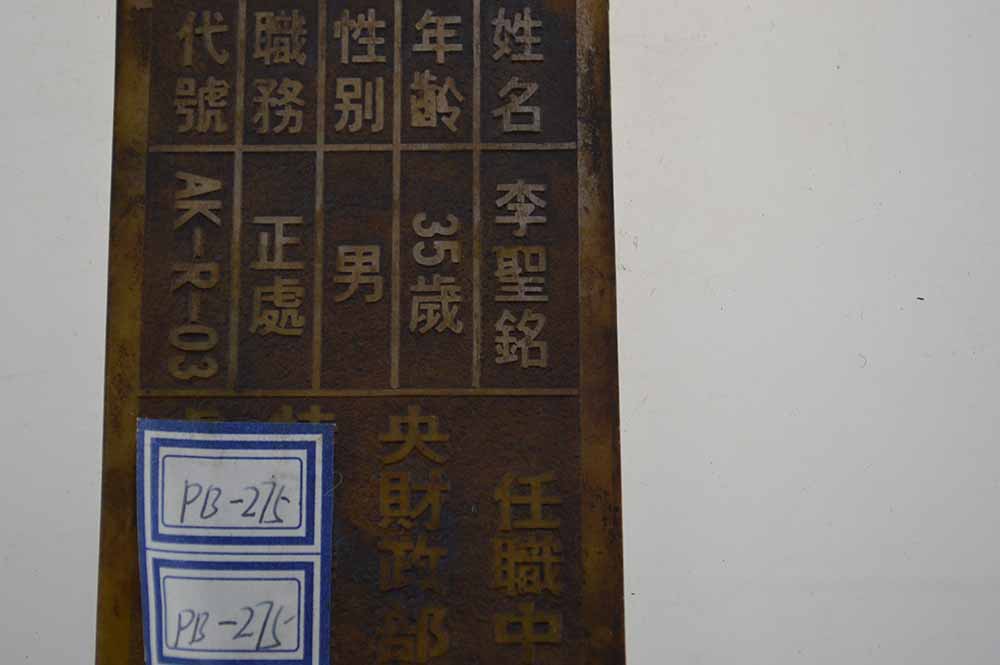 姓名 李聖銘
年齡 35歲
性别 男
職務 正處
代號 AK-R-03
任職中
央財政部
PB-275
PB-275